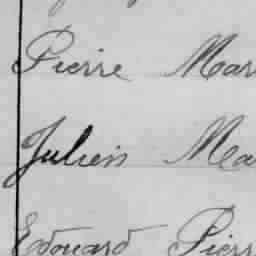 Pierre Mar
Julien Ma
Edouard Pierr